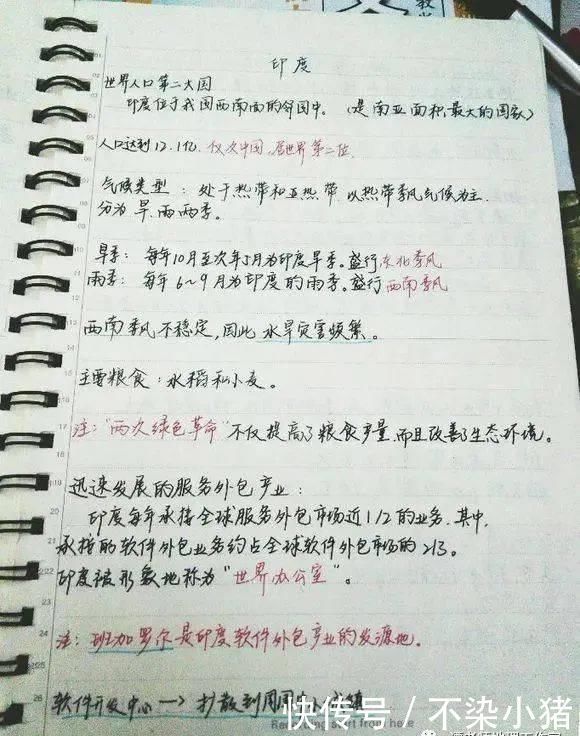 印度
世界人口第二大国
印度位于我国西南面的邻国中。（是南亚面积最大的国家）
人口达到12.1亿.仅次中国,居世界第二位.
气候类型：处于热带和亚热带.以热带季风气候为主.
分为旱.雨两季。
旱季：每年10月至次年5月为印度旱季。盛行东北季风
雨季：每年6~9月为印度的雨季。盛行西南季风
西南季风不稳定,因此水旱灾害频繁。
主要粮食：水稻和小麦。
注："两次绿色革命"不仅提高了粮食产量.而且改善了生态环境。
迅速发展的服务外包产业：
印度每年承接全球服务外包市场近1/2的业务.其中,
承接的软件外包业务约占全球软件外包市场的2/3。
印度被形象地称为"世界办公室"。
注：班加罗尔是印度软件外包产业的发源地。
软件开发中心—>扩散到周围
start from here
快传号/不染小猪